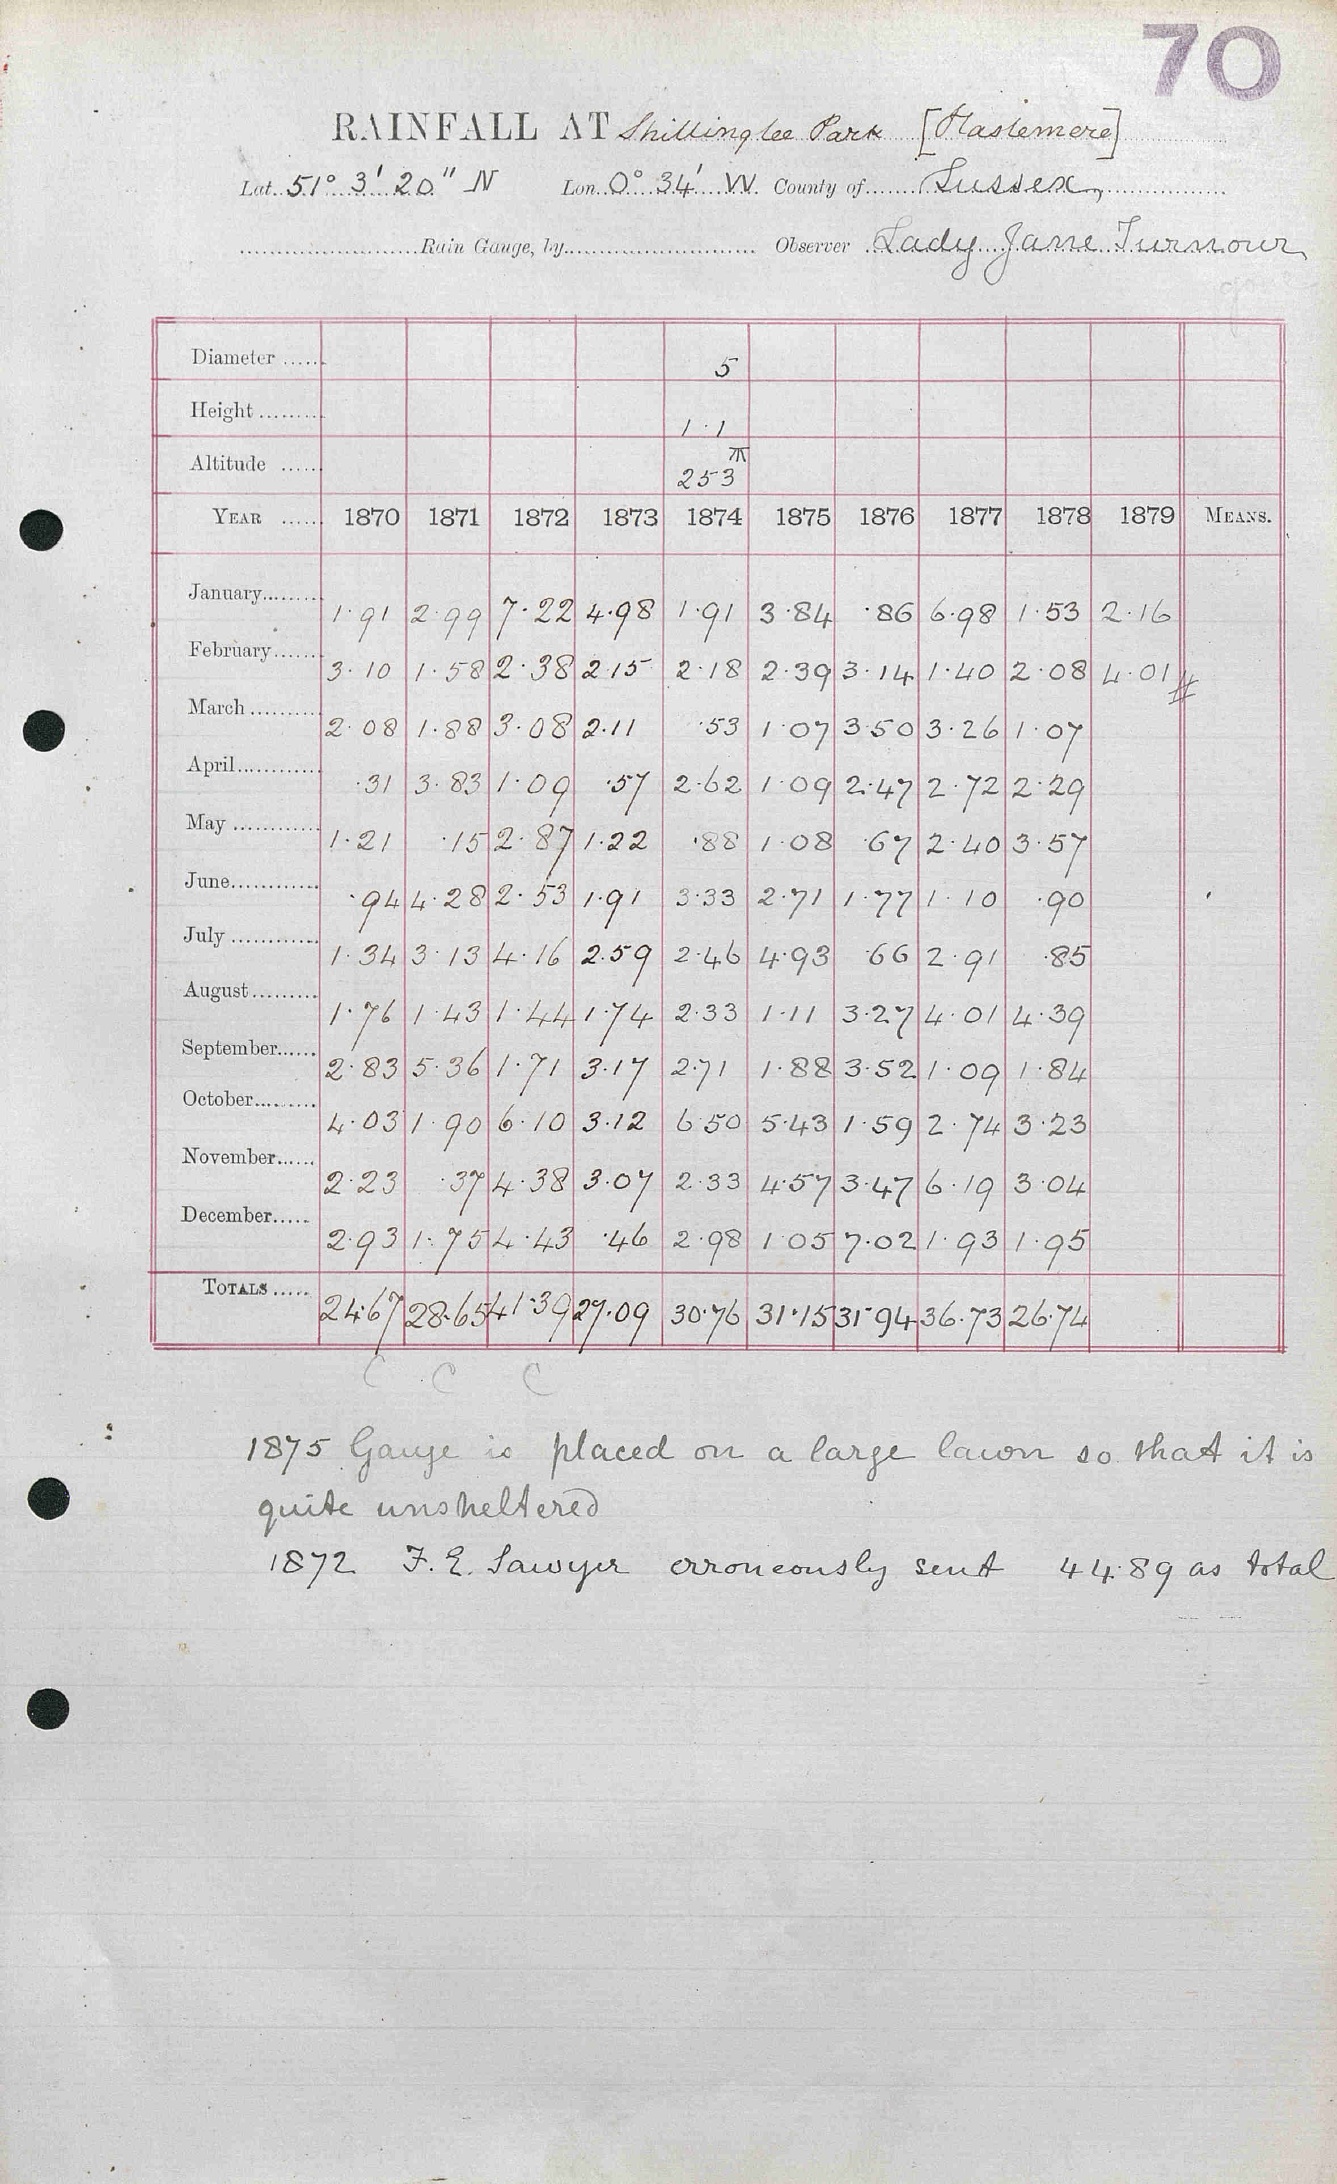 70
RAINFALL AT Shillinglee Park [Haslemere]
Lat. 51° 3' 20" N Lon. 0° 34' W. County of Sussex,
Rain Gauge, by Observer Lady Jane Turnour
Diameter 5
Height 1·1
Altitude 253
YEAR 1870 1871 1872 1873 1874 1875 1876 1877 1878 1879 MEANS.
January 1·91 2·99 7·22 4·98 1·91 3·84 ·86 6·98 1·53 2·16
February 3·10 1·58 2·38 2·15 2·18 2·39 3·14 1·40 2·08 4·01 #
March 2·08 1·88 3·08 2·11 ·53 1·07 3·50 3·26 1·07
April ·31 3·83 1·09 ·57 2·62 1·09 2·47 2·72 2·29
May 1·21 ·15 2·87 1·22 ·88 1·08 ·67 2·40 3·57
June ·94 4·28 2·53 1·91 3·33 2·71 1·77 1·10 ·90
July 1·34 3·13 4·16 2·59 2·46 4·93 ·66 2·91 ·85
August 1·76 1·43 1·44 1·74 2·33 1·11 3·27 4·01 4·39
September 2·83 5·36 1·71 3·17 2·71 1·88 3·52 1·09 1·84
October 4·03 1·90 6·10 3·12 6·50 5·43 1·59 2·74 3·23
November 2·23 ·37 4·38 3·07 2·33 4·57 3·47 6·19 3·04
December 2·93 1·75 4·43 ·46 2·98 1·05 7·02 1·93 1·95
TOTALS 24·67 28·65 41·39 27·09 30·76 31·15 31·94 36·73 26·74
C C C
1875 Gauge is placed on a large lawn so that it is
quite unsheltered
1872 F. E. Sawyer erroneously sent 44·89 as total